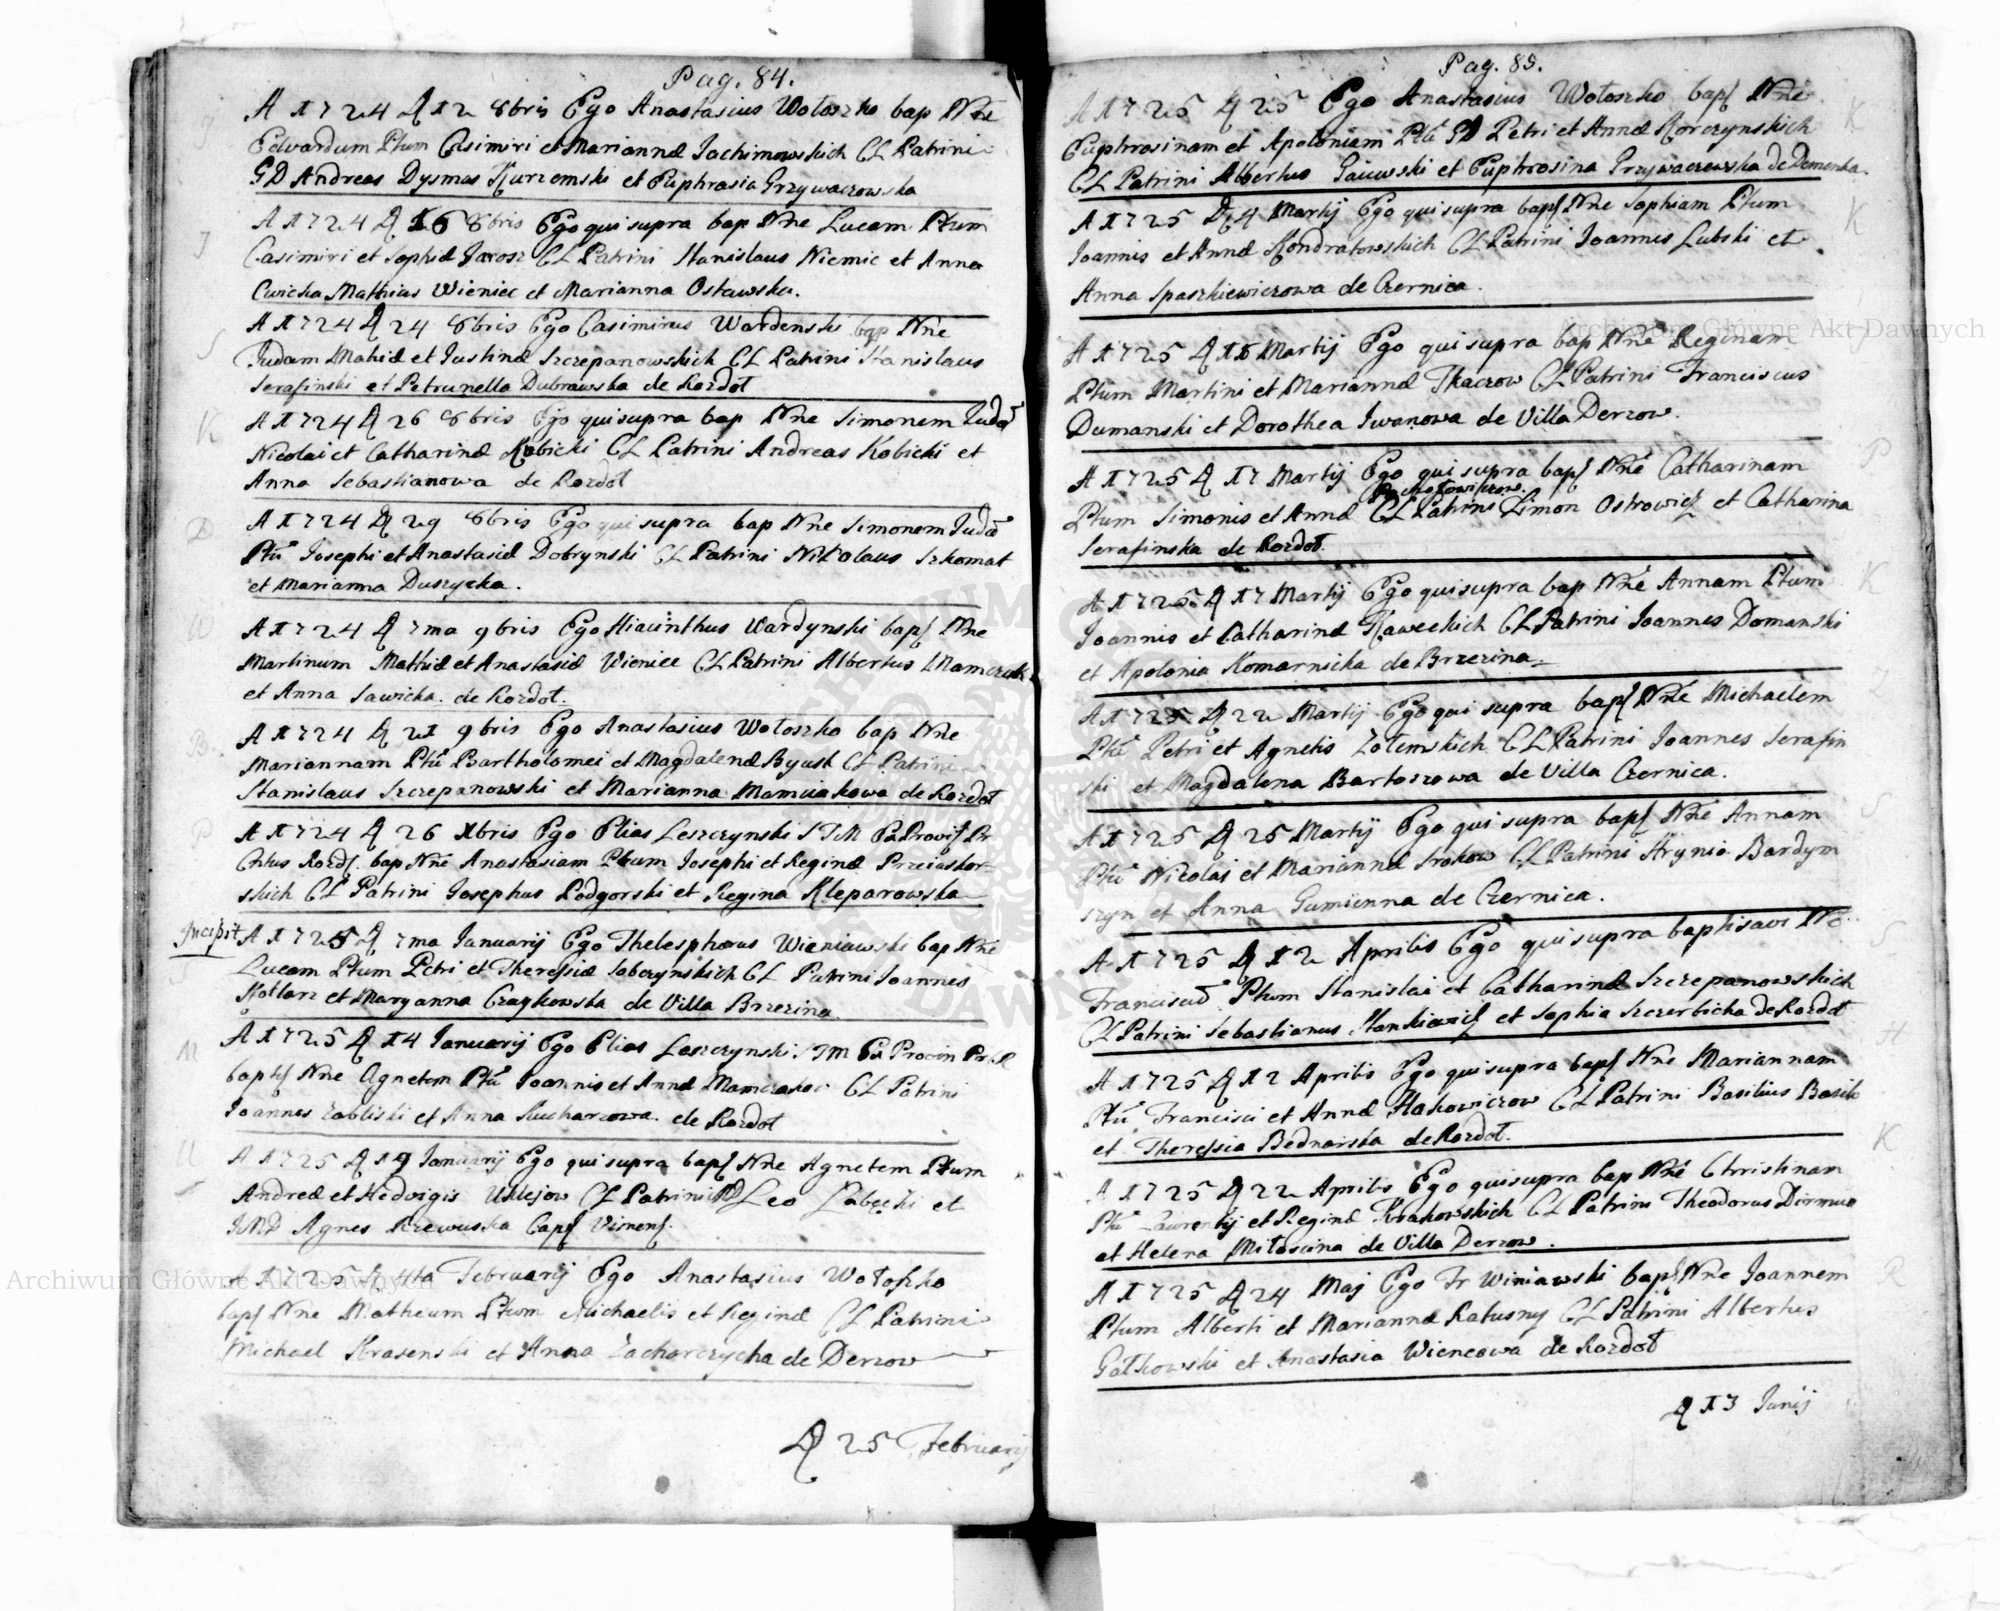 Pag. 84.
J
A 1724 D 12 8bris Ego Anastasius Wołoszko bap Nne
Edvardum Ptum Casimiri et Mariannæ Jachimowskich CL Patrini
GD Andreas Dysmas Kurzemski et Euphrasia Grzywaczowska
J
A 1724 D 16 8bris Ego qui supra bap Nne Lucam Ptum
Casimiri et Sophiæ Jarosz CL Patrini Stanislaus Niemic et Anna
Cwicka Mathias Wieniec et Marianna Ostawska.
S
A 1724 D 24 8bris Ego Casimirus Wardenski bap Nne
Judam Mahiæ et Justinæ Szczepanowskich CL Patrini Stanislaus
Serafinski et Petrunella Dubrawska de Rozdoł
K
A 1724 D 26 8bris Ego qui supra bap Nne Simonem Juda
Nicolai et Catharinæ Kobicki CL Patrini Andreas Kobicki et
Anna Sebastianowa de Rozdoł
D
A 1724 D 29 8bris Ego qui supra bap Nne Simonem Juda
Ptu Josephi et Anastasiæ Dobrynski CL Patrini Nikolaus Szkomat
et Marianna Duszycka.
W
A 1724 D 7ma 9bris Ego Hiacinthus Wardynski bap Nne
Martinum Mathiæ et Anastasiæ Wieniec CL Patrini Albertus Mamczak
et Anna Sawicka. de Rozdoł.
B
A 1724 D 21 9bris Ego Anastasius Wołoszko bap Nne
Mariannam Ptu Bartholomei et Magdalenæ Byask CL Patrini
Stanislaus Szczepanowski et Marianna Mamciakowa de Rozdoł
P
A 1724 D 26 Xbris Ego Elias Leszczynski STM Ex Provif Pr
Cntus Rozdf. bap Nne Anastasiam Ptum Josephi et Reginæ Przeiaskor-
skich CL Patrini Josephus Podgorski et Regina Kleparowska
Incipit
S
A 1725 D 7ma Januarij Ego Thelesphorus Wieniawski bap Nne
Lucam Ptum Petri et Theressiæ Sobczynskich CL Patrini Joannes
Kotlarz et Maryanna Czaykowska de Villa Brzezina
M
A 1725 D 14 Januarij Ego Elias Leszczynski STM Ex Provin Pr. R
baptif Nne Agnetem Ptu Joannis et Annæ Mamczakow CL Patrini
Joannes Zabliski et Anna Kucharzowa. de Rozdoł
U
A 1725 D 19 Januarij Ego qui supra bap Nne Agnetem Ptum
Andreæ et Hedvigis Uklejow CL Patrini Leo Zabęcki et
JMD Agnes Rzewuska Capf Vimenf.
A 1725 D 4ta Februarij Ego Anastasius Wołoszko
bapf Nne Matheum Ptum Michaelis et Reginæ CL Patrini
Michael Krasenski et Anna Zacharczycha de Derzow
D 25 Februarij
Pag. 85.
A 1725 D 25 Ego Anastasius Wołoszko bapf Nne
K
Euphrosinam et Apoloniam Ptu GD Petri et Annæ Korczynskich
CL Patrini Albertus Gaiewski et Euphrosina Grzywaczewska de Demenka.
A 1725 D 4 Martij Ego qui supra bapf Nne Sophiam Ptum
K
Joannis et Annæ Kondratowskich CL Patrini Joannes Lubski et
Anna Spaszkiewiczowa de Czernica.
A 1725 D 15 Martij Ego qui supra bap Nne Reginam
Ptum Martini et Mariannæ Tkaczow CL Patrini Franciscus
Dumanski et Dorothea Iwanowa de Villa Derzow.
P
A 1725 D 17 Martij Ego qui supra bapf Nne Catharinam
Ptum Simonis et Annæ CL Patrini Simon Ostrowicz et Catharina
Serafinska de Rozdoł.
K
A 1725 D 17 Martij Ego qui supra bap Nne Annam Ptum
Joannis et Catharinæ Kaweckich CL Patrini Joannes Domanski
et Apolonia Komarnicka de Brzezina
A 1725 D 22 Martij Ego qui supra bapf Nne Michaelem
Ptu Petri et Agnetis Zotemskich CL Patrini Joannes Serafin
ski et Magdalena Bartoszowa de Villa Czernica.
S
A 1725 D 25 Martij Ego qui supra bapf Nne Annam
Ptu Nicolai et Mariannæ Srokow CL Patrini Hrynio Bardym
szyn et Anna Gumienna de Czernica.
A 1725 D 12 Aprilis Ego qui supra baptisavi Nne
S
Franciscu Ptum Stanislai et Catharinæ Szczepanowskich
CL Patrini Sebastianus Stankiewicz et Sophia Szczerbicka de Rozdoł
H
A 1725 D 12 Aprilis Ego qui supra bapf Nne Mariannam
Ptu Francisci et Annæ Hakowiczow CL Patrini Basilius Basil
et Theressia Bednarska de Rozdoł.
K
A 1725 D 22 Aprilis Ego qui supra bap Nne Christinam
Ptu Laurentij et Reginæ Krakowskich CL Patrini Theodorus Dirmuo
et Helena Miłoscina de Villa Derzow.
R
A 1725 D 24 Maj Ego Fr Winiawski bapf Nne Joannem
Ptum Alberti et Mariannæ Ratusny CL Patrini Albertus
Gałkowski et Anastasia Wiencowa de Rozdoł
D 13 Junij
Archiwum Główne Akt Dawnych
Archiwum Główne Akt Dawnych